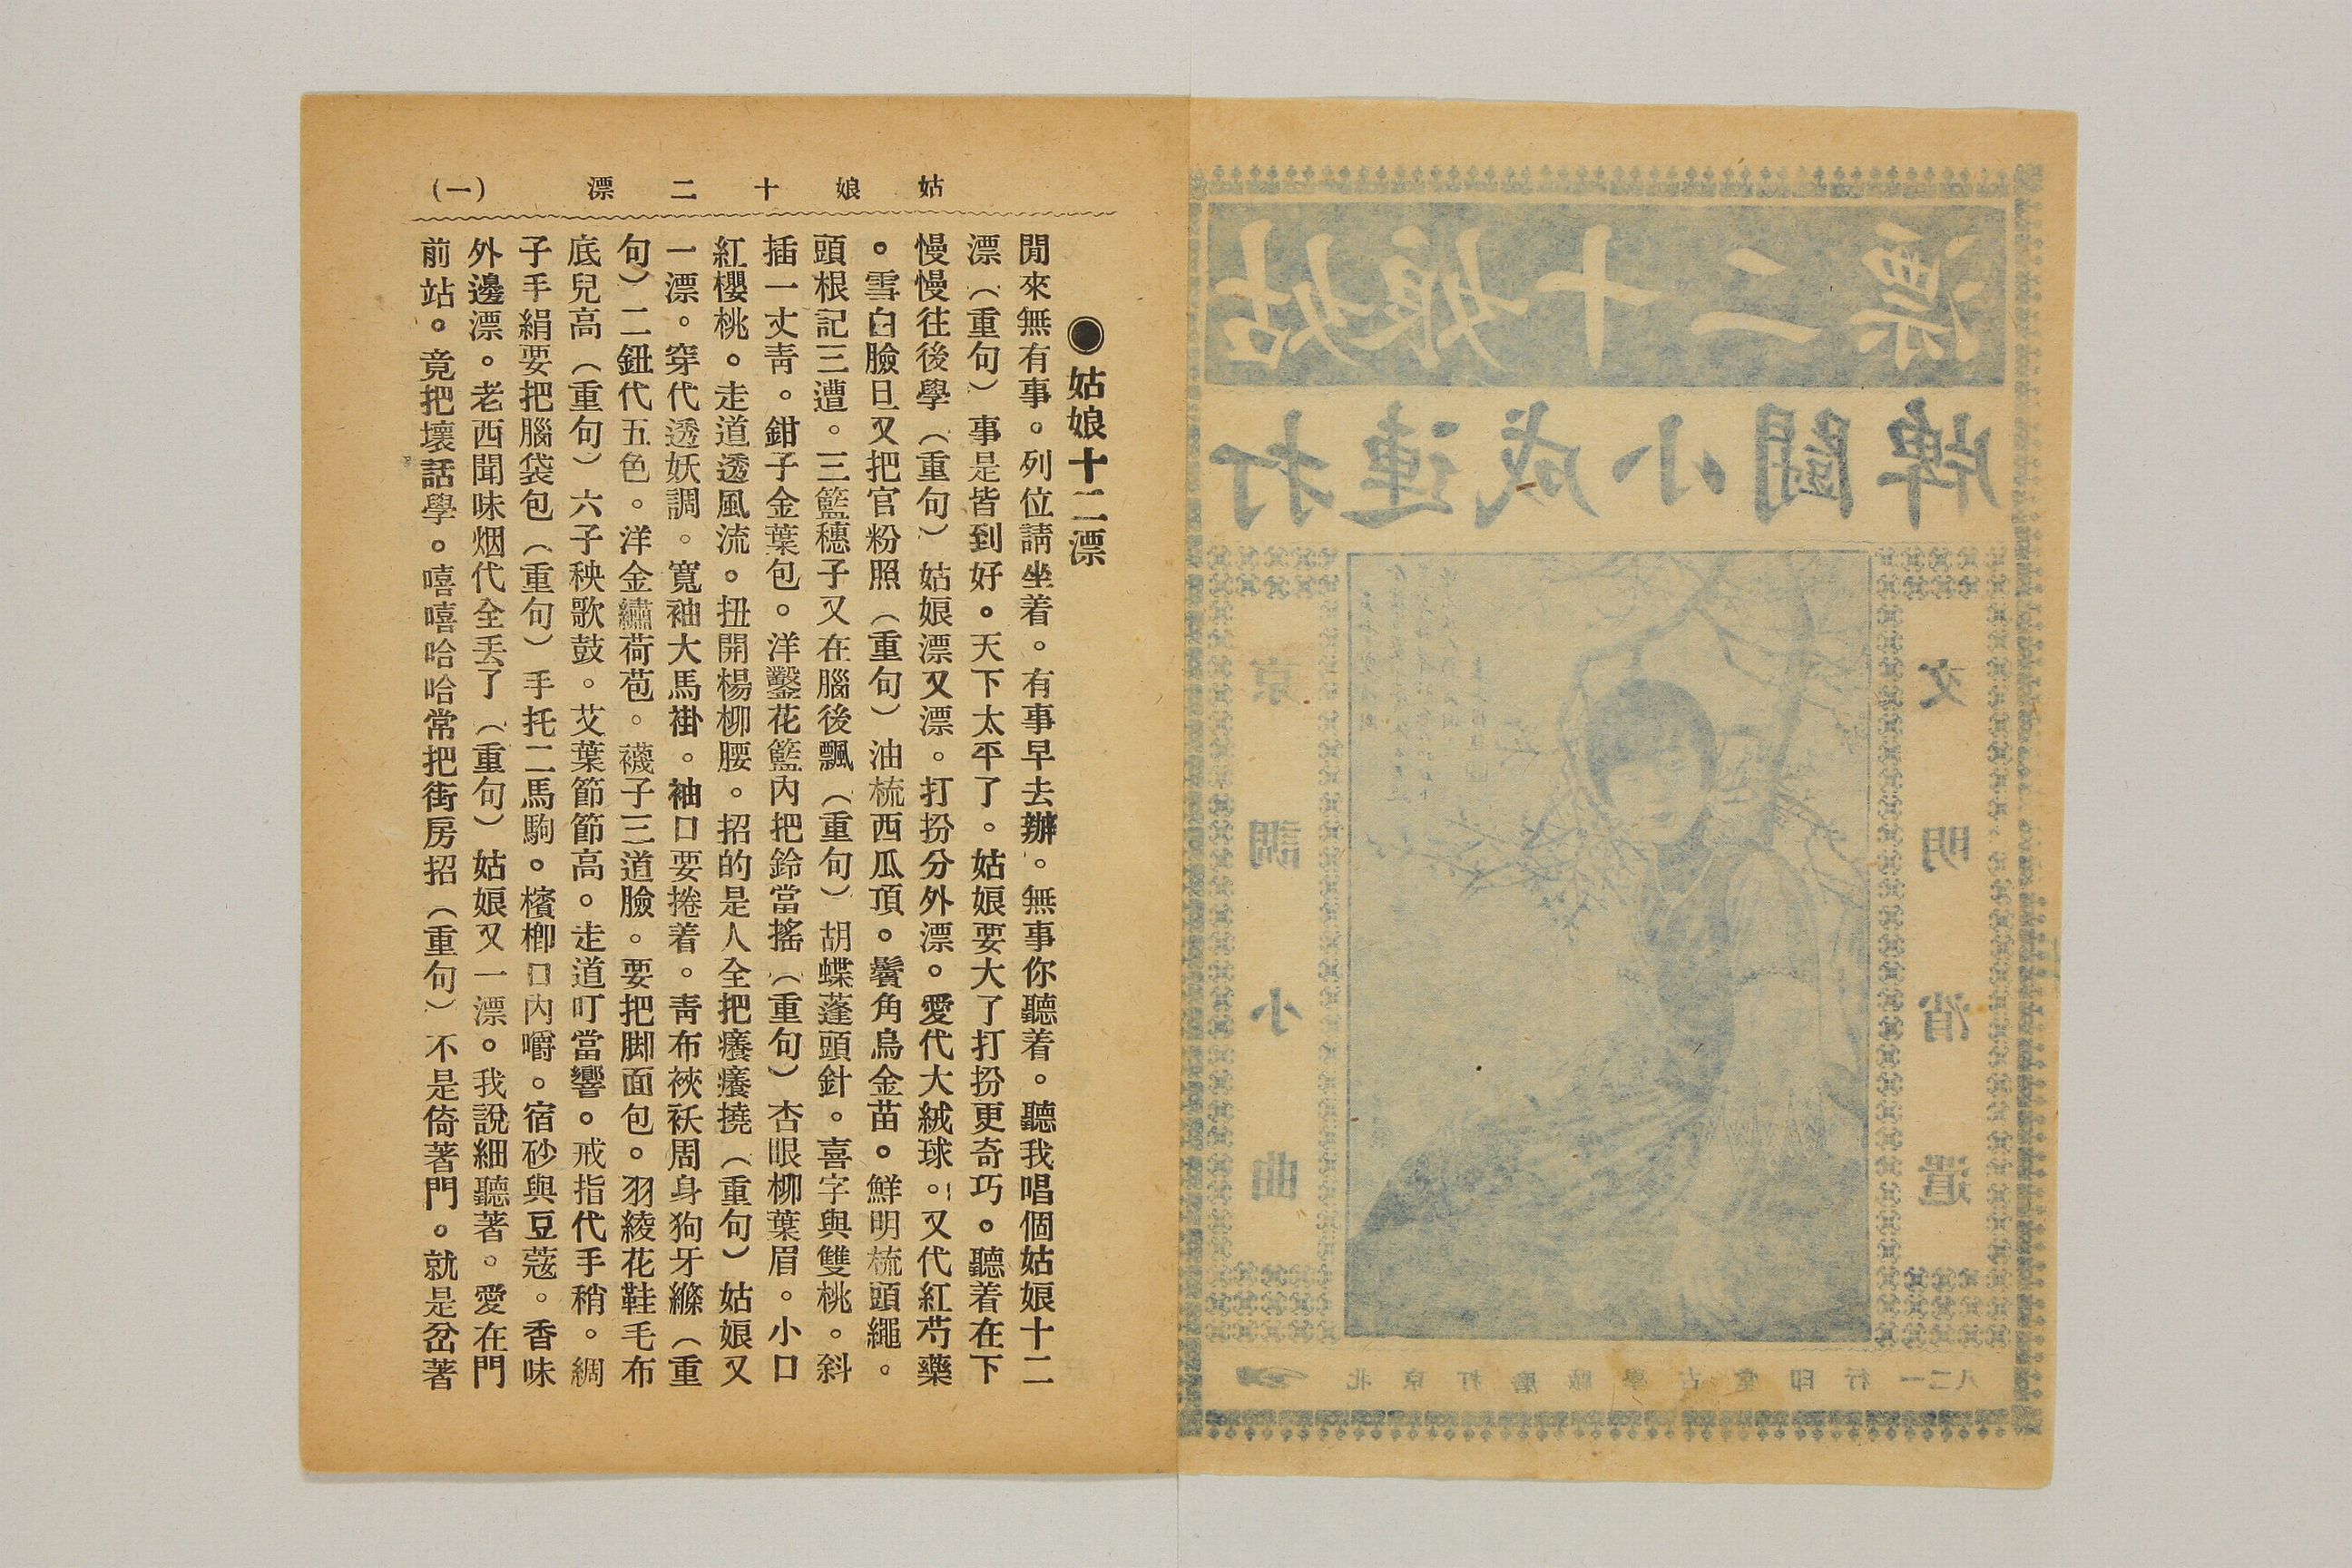 姑娘十二漂
打連成小鬪牌
文明消遣
京調小曲
北京打磨廠學古堂印行 一二八
姑娘十二漂 (一)
●姑娘十二漂
閒來無有事。列位請坐着。有事早去辦。無事你聽着。聽我唱個姑娘十二
漂（重句）事是皆到好。天下太平了。姑娘要大了打扮更奇巧。聽着在下
慢慢往後學（重句）姑娘漂又漂。打扮分外漂。愛代大絨球。又代紅芍藥
。雪白臉旦又把官粉照（重句）油梳西瓜頂。鬢角鳥金苗。鮮明梳頭繩。
頭根記三遭。三籃穗子又在腦後飄（重句）胡蝶蓬頭針。喜字與雙桃。斜
插一丈靑。鉗子金葉包。洋鑿花籃內把鈴當搖（重句）杏眼柳葉眉。小口
紅櫻桃。走道透風流。扭開楊柳腰。招的是人全把癢癢撓（重句）姑娘又
一漂。穿代透妖調。寬袖大馬褂。袖口要捲着。靑布裌袄周身狗牙縧（重
句）二鈕代五色。洋金繡荷苞。襪子三道臉。要把脚面包。羽綾花鞋毛布
底兒高（重句）六子秧歌鼓。艾葉節節高。走道叮當響。戒指代手稍。綢
子手絹要把腦袋包（重句）手托二馬駒。檳榔口內嚼。宿砂與豆蔻。香味
外邊漂。老西聞味烟代全丢了（重句）姑娘又一漂。我說細聽著。愛在門
前站。竟把壞話學。嘻嘻哈哈常把街房招（重句）不是倚著門。就是岔著